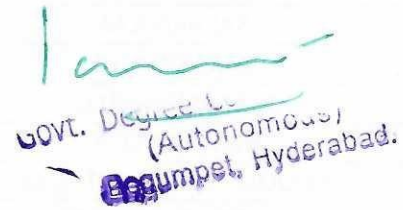 Govt. Degree
(Autonomous)
Begumpet, Hyderabad.